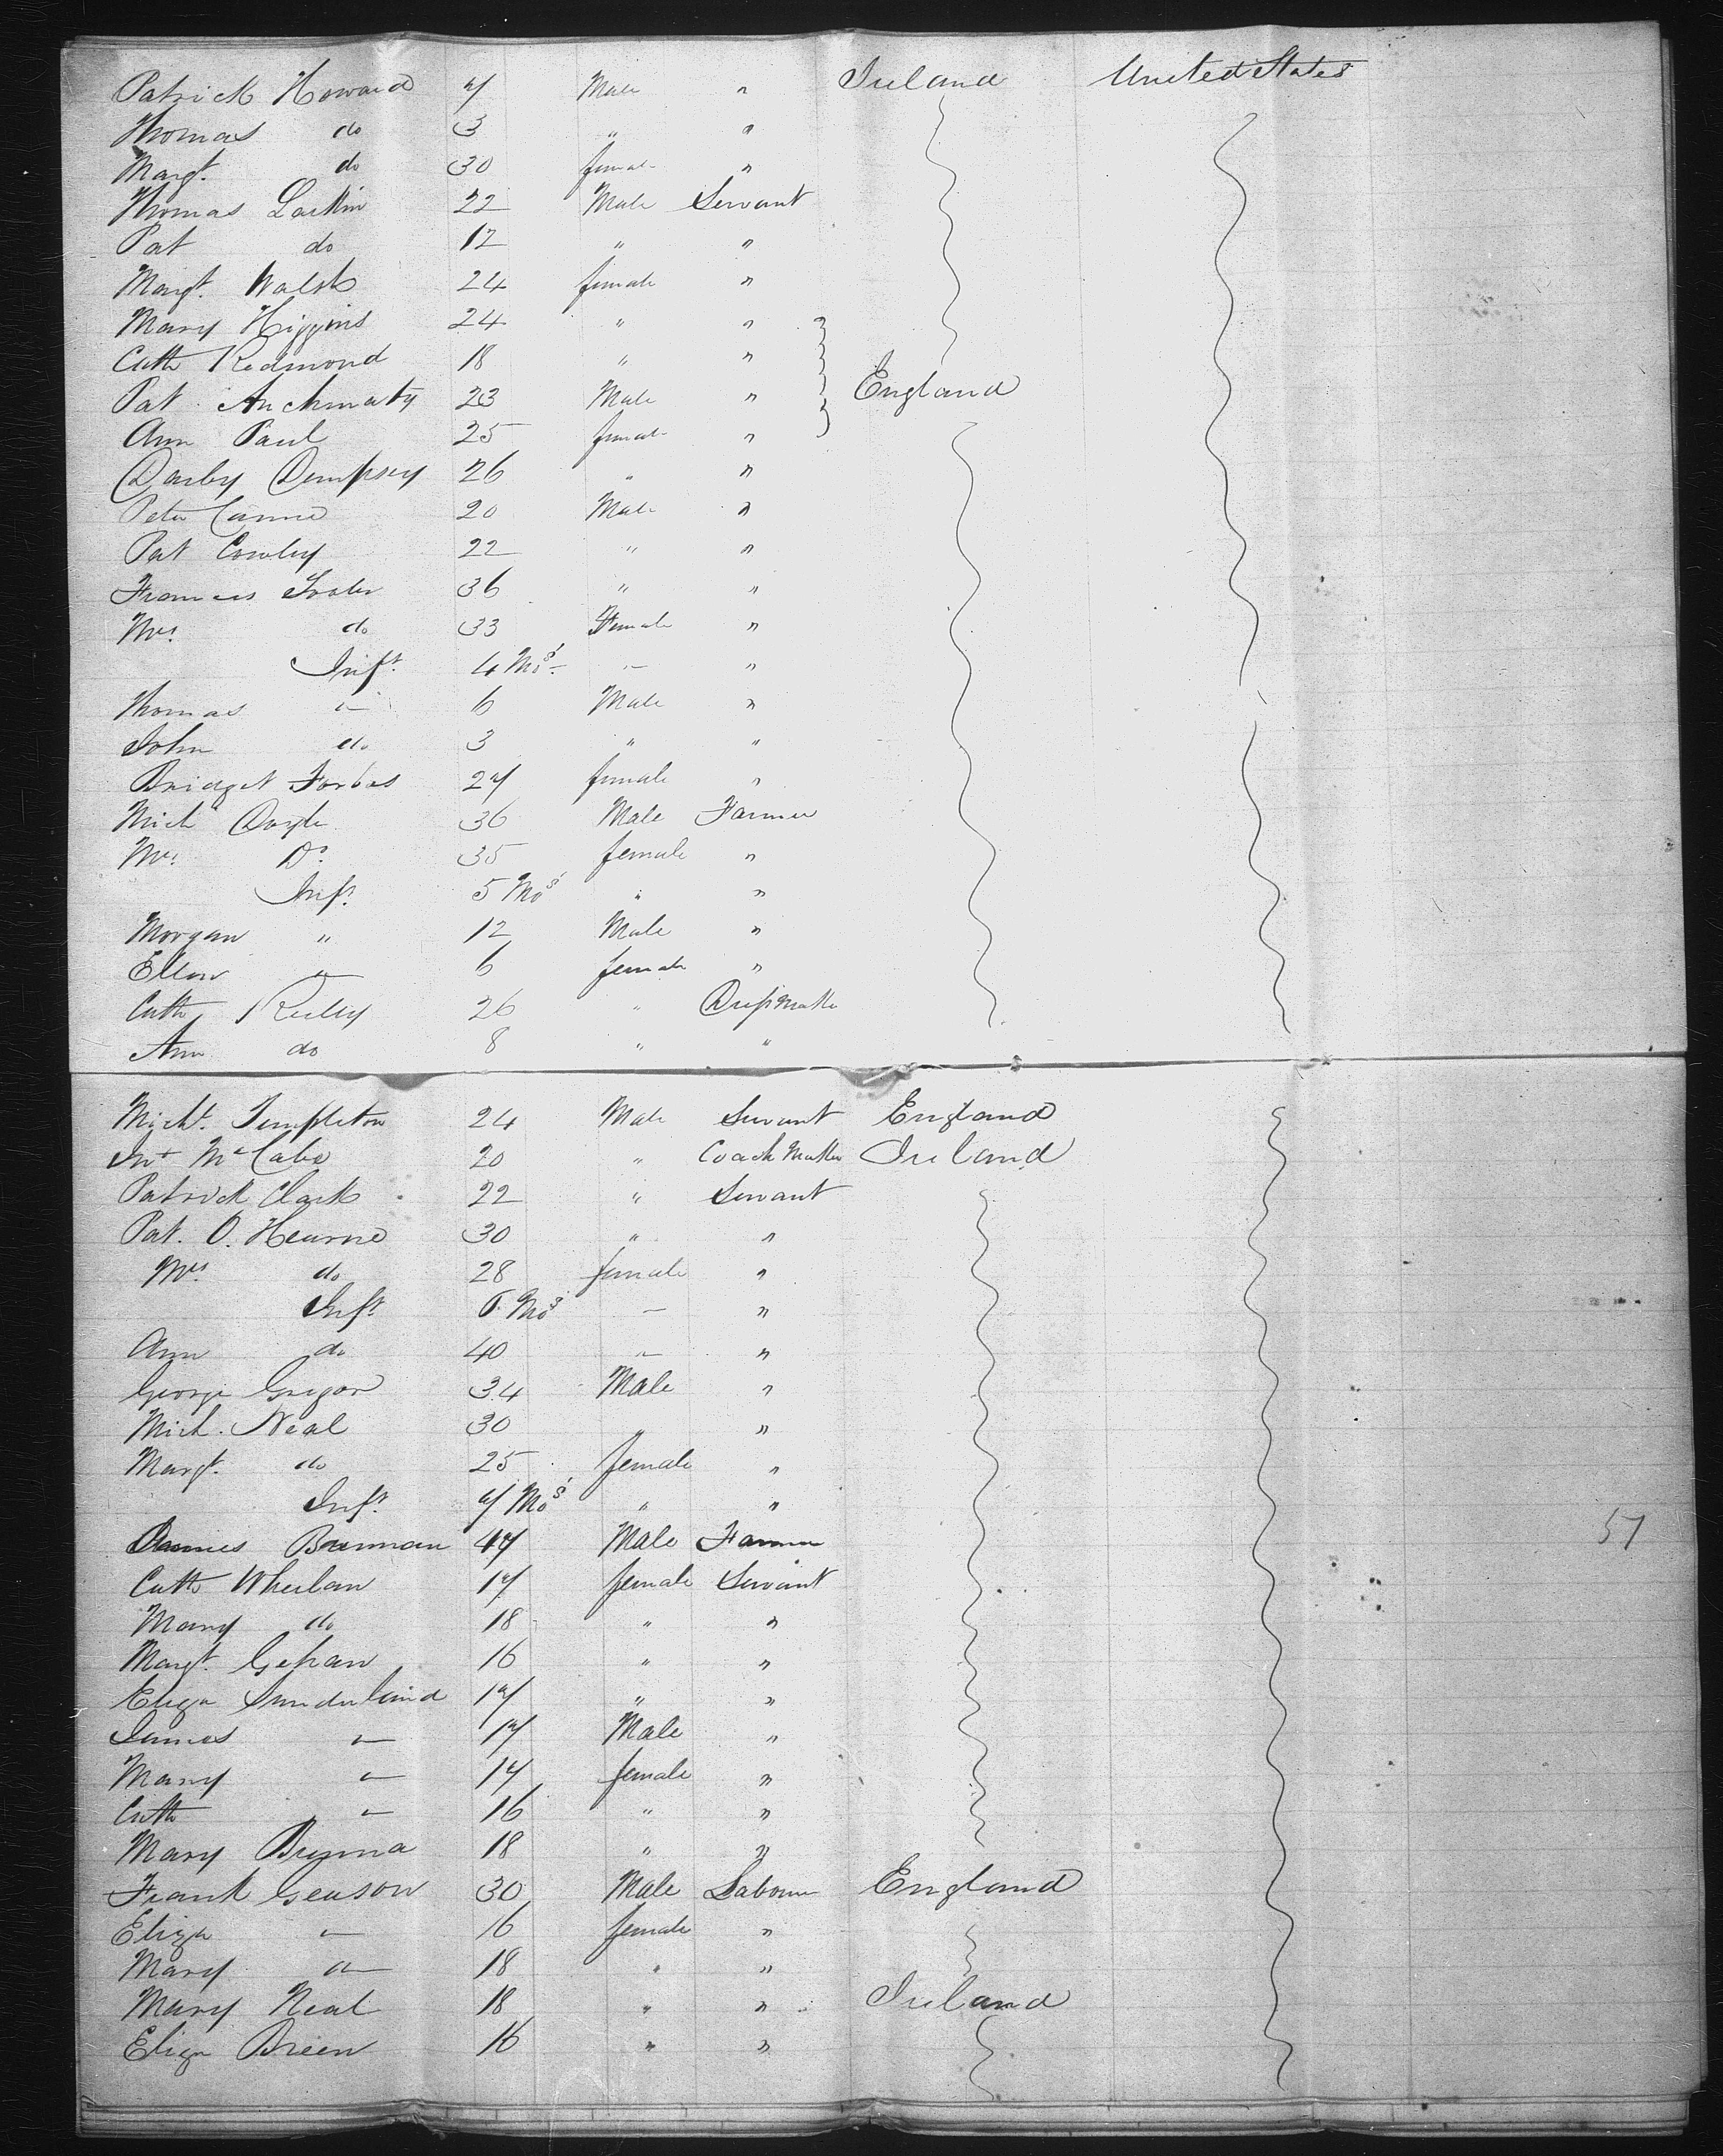 Patrick Howard 7 Male " Ireland United States
Thomas do 3 " "
Margt. do 30 female "
Thomas Larkin 22 Male Servant
Pat do 12 " "
Margt. Walsh 24 female "
Mary Higgins 24 " "
Cath Redmond 18 " "
Pat 23 Male " England
Ann Paul 25 female "
Darby Dempsey 26 " "
Peter 20 Male "
Pat Cowley 22 " "
Frances 36 " "
Mrs. do 33 Female "
Inft. 4 Mos. "
Thomas " 6 Male "
John do 3 " "
Bridget Forbes 27 female "
Mich Doyle 36 Male Farmer
Mrs. Do. 35 female "
Inft. 5 Mos " "
Morgan " 12 Male "
Ellen " 6 female "
Cath Reilly 26 " Dressmaker
Ann do 8 " "
Michl. Templeton 24 Male Servant England
Jno McCabe 20 " Coach Maker Ireland
Patrick Clark 22 " Servant
Pat. O. Hearne 30 " "
Mrs. do 28 female "
Inft. 6 Mos — "
Ann do 40 " "
George Gregor 34 Male "
Mich. Neal 30 " "
Margt. do 25 female "
Inft. 7 Mos " "
James 47 Male Farmer
Cath Wheelan 17 female Servant
Mary do 18 " "
Margt. Gehan 16 " "
Eliza Sunderland 17 " "
James " 17 Male "
Mary " 14 female "
Cath " 16 " "
Mary 18 " "
Frank Geason 30 Male Labourer England
Eliza " 16 female "
Mary " 18 " "
Mary Neal 18 " " Ireland
Eliza Breen 16 " "
57